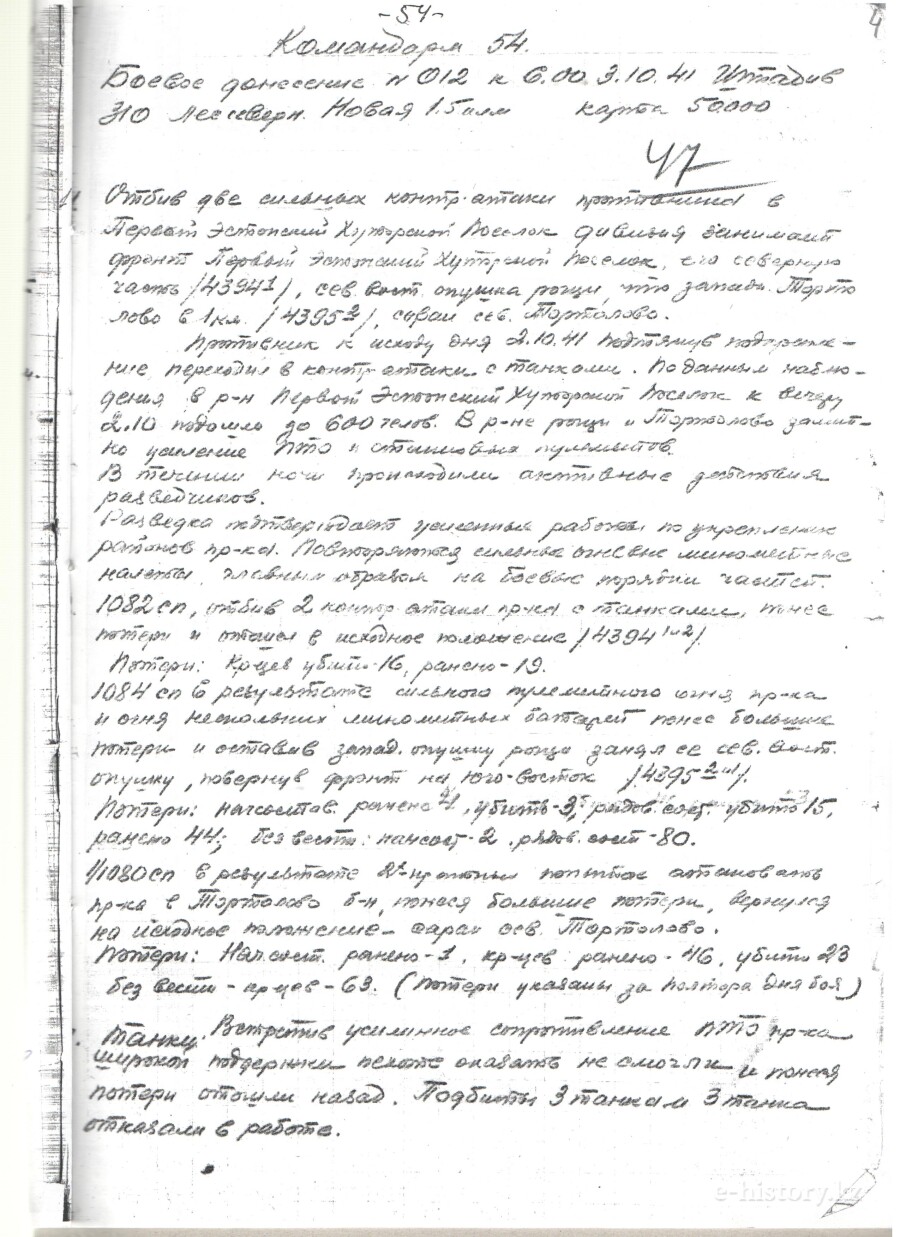 -54-
4
Командарм 54.
Боевое донесение N 012 к 6.00 3.10.41 Штадив
310 Лес севернее Новая 1.5 клм карта 50000
47
Отбив две сильных контр-атаки противника в
Первой Эстонский Хуторской Поселок дивизия занимает
фронт Первый Эстонский Хуторской Поселок, его северную
часть /4394 1/, сев. вост. опушка рощи, что запад. Торто
лово в 1 км. /4395 2/, сараи сев. Тортолово.
Противник к исходу дня 2.10.41 подтянув подкрепле-
ние, переходил в контр-атаки с танками. По данным наблю-
дения в р-н Первой Эстонский Хуторской Поселок к вечеру
2.10 подошло до 600 челов. В р-не рощи и Тортолово замет-
но усиление ПТО и станковых пулеметов.
В течении ночи происходили активные действия
разведчиков.
Разведка подтверждает усиленные работы по укреплению
районов пр-ка. Повторяются сильные огневые минометные
налеты, главным образом на боевые порядки частей.
1082 сп, отбив 2 контр атаки пр-ка с танками, понес
потери и отошел в исходное положение /4394 1 и 2/.
Потери: Кр-цев убито-16, ранено-19.
1084 сп в результате сильного пулеметного огня пр-ка
и огня нескольких минометных батарей понес большие
потери и оставив запад. опушку рощи занял ее сев. вост.
опушку, повернув фронт на Юго-Восток /4395 2/.
Потери: начсостав. ранено 4, убито-3, рядов. сост. убито 15,
ранено 44; без вести: начсост-2, рядов. сост-80.
1/1080 сп в результате 2х кратных попыток атаковать
пр-ка в Тортолово б-н, понеся большие потери, вернулся
на исходное положение - сараи сев. Тортолово.
Потери: Нач. сост. ранено-1, кр-цев ранено-46, убито 23
без вести - кр-цев-63. (Потери указаны за полтора дня боя)
Танки: Встретив усиленное сопротивление ПТО пр-ка
широкой поддержки пехоте оказать не смогли и понеся
потери отошли назад. Подбиты 3 танка и 3 танка
отказали в работе.
e-history.kz